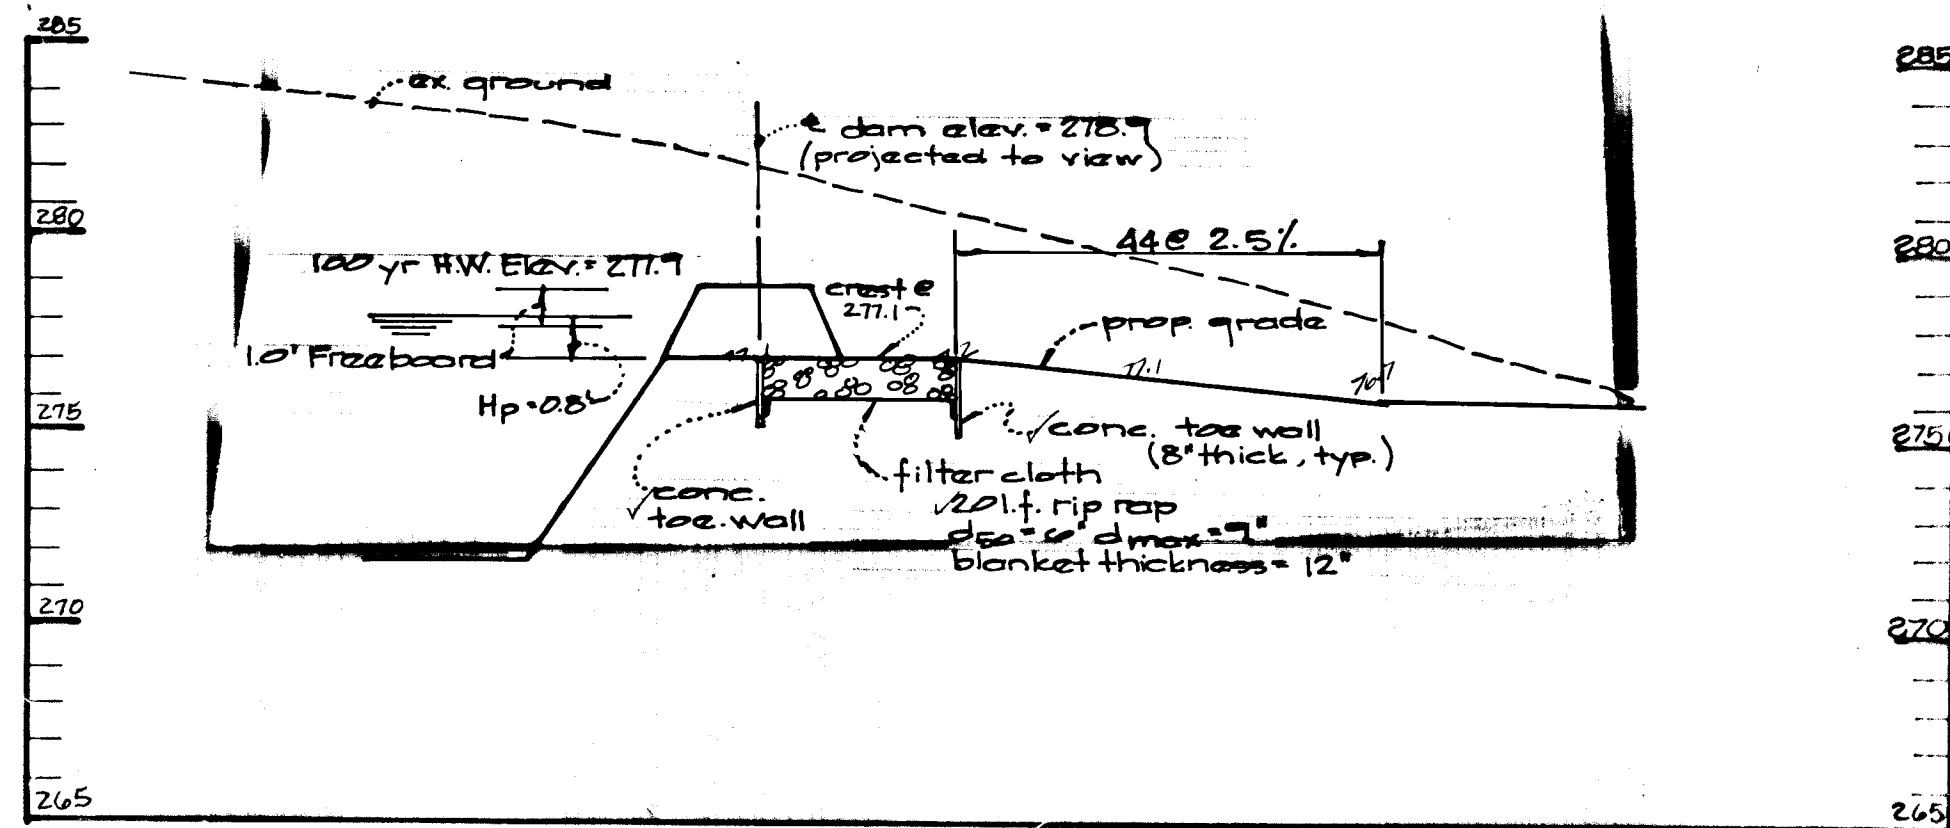 285
285
ex. ground
℄ dam elev. = 278.9
(projected to view)
280
280
44 @ 2.5%
100 yr H.W. Elev. = 277.9
crest @
277.1
prop. grade
1.0' Freeboard
77.1
Hp = 0.8'
275
275
conc. toe wall
(8" thick, typ.)
filter cloth
conc.
toe. wall
20 l.f. rip rap
d50 = 6" dmax = 9"
blanket thickness = 12"
270
270
265
265